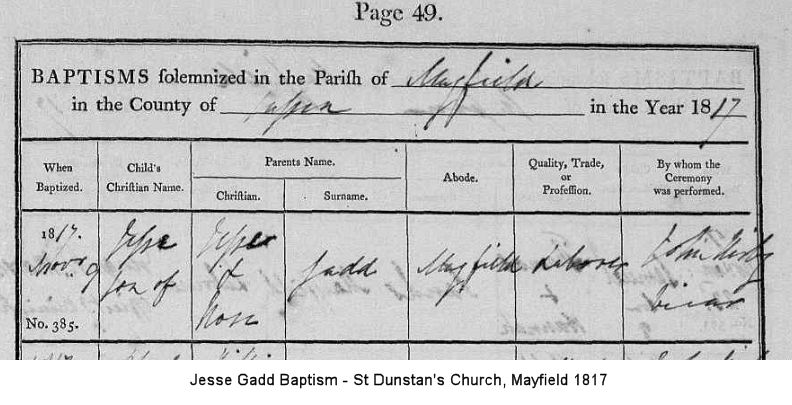 Page 49.
BAPTISMS solemnized in the Parish of Mayfield
in the County of Sussex in the Year 1817
When Baptized.
Child's Christian Name.
Parents Name.
Christian.
Surname.
Abode.
Quality, Trade, or Profession.
By whom the Ceremony was performed.
1817.
Novr 9
No. 385.
Jesse
son of
Jesse
&
Rose
Gadd
Mayfield
Laborer
John Kirby
Vicar
Jesse Gadd Baptism - St Dunstan's Church, Mayfield 1817